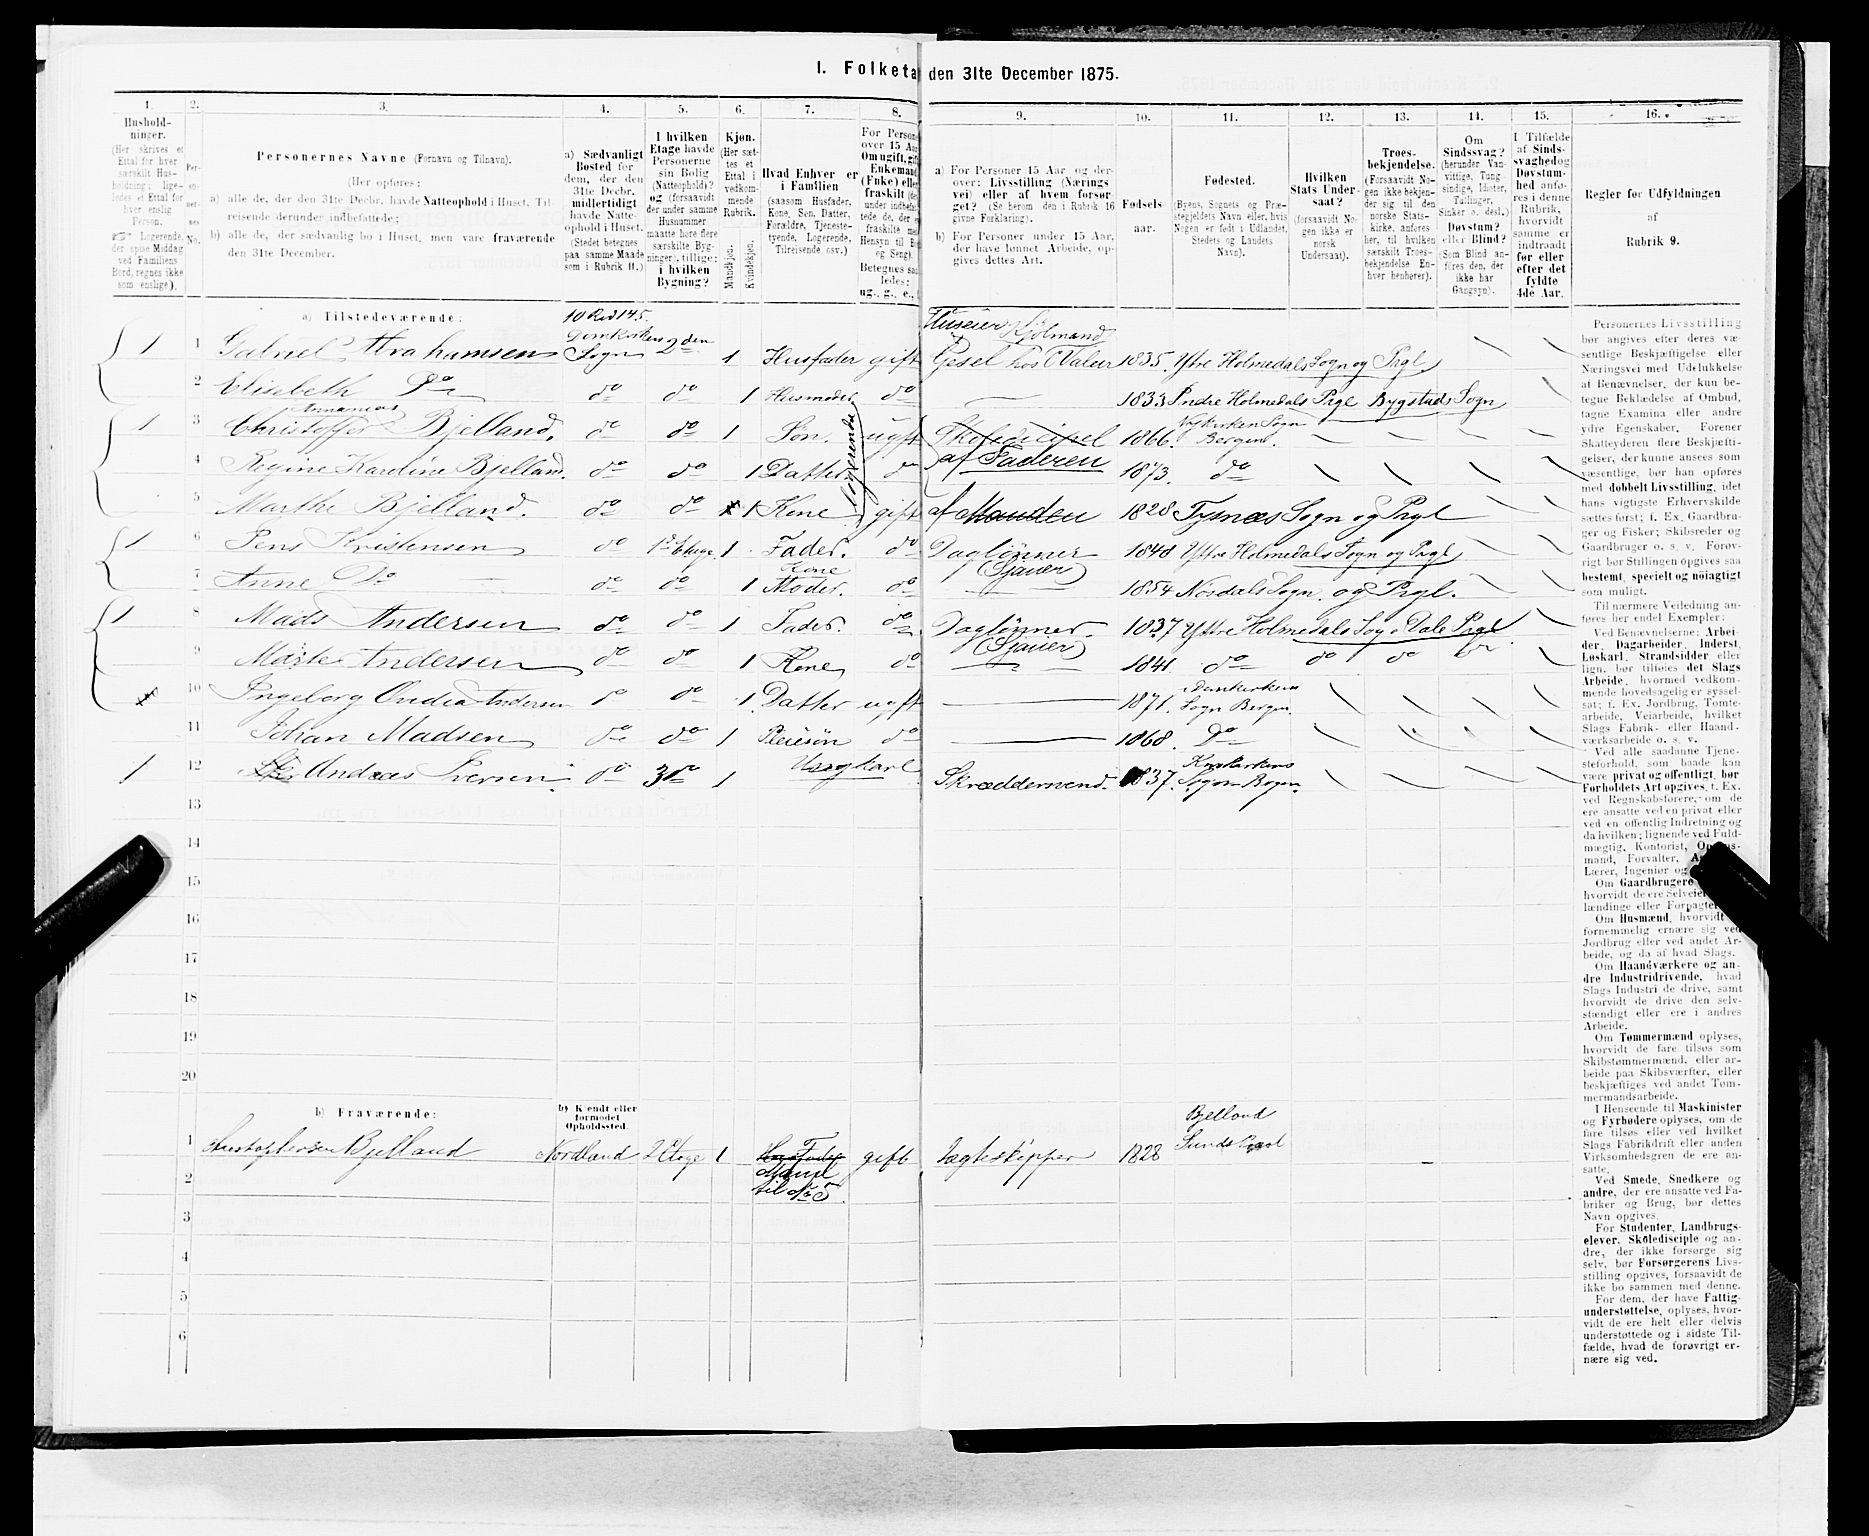 I. Folketa den 31te December 1875.
1. 2. 3. 4. 5. 6. 7. 8. 9. 10. 11. 12. 13. 14. 15. 16.
Hushold-
ninger.
(Her skrives et
Ettal for hver
særskilt Hus-
holdning; lige-
ledes et Ettal for
hver enslig
Person.
Logerende,
der spise Middag
ved Familiens
Bord, regnes ikke
som enslige).
Per-
so-
ner-
nes
No.
Personernes Navne (Fornavn og Tilnavn).
(Her opføres:
a) alle de, der den 31te Decbr. havde Natteophold i Huset, Til-
reisende derunder indbefattede;
b) alle de, der sædvanlig bo i Huset, men vare fraværende
den 31te December.
a) Sædvanligt
Bosted for
dem, der den
31te Decbr.
midlertidigt
havde Natte-
ophold i Huset.
(Stedet betegnes
paa samme Maade
som i Rubrik 11.)
I hvilken
Etage havde
Personerne
sin Bolig
(Natteophold)?
og (forsaavidt
der under samme
Husnummer
maatte høre flere
særskilte Byg-
ninger), tillige:
i hvilken
Bygning?
Kjøn.
(Her sæt-
tes et
Ettal i
vedkom-
mende
Rubrik.
Mandkjøn.
Kvindekjøn.
Hvad Enhver er
i Familien
(saasom Husfader,
Kone, Søn, Datter,
Forældre, Tjeneste-
tyende, Logerende,
Tilreisende osv.)
For Person
over 15 Aa
Om ugift, gif
Enkemand
(Enke) elle
fraskilt (de
under indbefat-
tede de, der e
fraskilte me
Hensyn til Bo
og Seng).
Betegnes saa
ledes:
ug., g., e.,
a) For Personer 15 Aar og der-
over: Livsstilling (Nærings
vei) eller af hvem forsør-
get? (Se herom den i Rubrik 16
givne Forklaring).
b) For Personer under 15 Aar,
der have lønnet Arbeide, op-
gives dettes Art.
Fødsels-
aar.
Fødested.
(Byens, Sognets og Præ-
stegjeldets Navn eller, hvis
Nogen er født i Udlandet,
Stedets og Landets
Navn).
Hvilken
Stats Under-
saat?
(forsaavidt No-
gen ikke er
norsk
Undersaat).
Troes-
bekjendelse.
(Forsaavidt No-
gen ikke bekjen-
der sig til den
norske Stats-
kirke, anføres
her, til hvilken
særskilt Troes-
bekjendelse En-
hver henhører).
Om
Sindssvag?
(herunder Van-
vittige, Tung-
sindige, Idioter,
Tullinger,
Sinker o. desl.)
Døvstum?
eller Blind?
(Som Blind an-
føres den, der
ikke har
Gangsyn).
I Tilfælde
af Sinds-
svaghed og
Døvstum-
hed anfø-
res i denne
Rubrik,
hvorvidt
samme er
indtraadt
før eller
efter det
fyldte
4de Aar.
Regler for Udfyldningen
af
Rubrik 9.
a) Tilstedeværende:
1 1 Gabriel Abrahamsen Domkirkens Sogn 2den 1 Husfader gift Huseier 1835. Ytre Holmedals Sogn og Prgl.
2 Elisebeth Do do do 1 Husmoder do 1833 Indre Holmedals Prgl Bygstads Sogn
1 3 Christoffer Bjelland. do do 1 Søn. ugft Skoledicipel 1866. Nykirken Sogn Bergen.
4 Regine Kardine Bjelland. do do 1 Datter do af Faderen 1873. do
Logerende
5 Marthe Bjelland. do do 1 Kone gift af Manden 1828 Tysnæs Sogn og Prgl
1 6 Jens Kristensen do 1ste Etage 1 Fader. do Daglønner Sjauer 1848 Yttre Holmedals Sogn og Prgl
7 Anne Do do do 1 Kone Moder. do 1854 Nordals Sogn og Prgl.
1 8 Mads Andersen do do 1 Fader. do Daglønner. Sjauer 1837 Yttre Holmedals Sog Dale Prgl
9 Marte Andersen do do 1 Kone do 1841. do do do do
10 Ingeborg Andersen do do 1 Datter ugft 1871. Domkirkens Sogn Bergen.
11 Johan Madsen do do 1 Pleiesøn do 1868. Do
1 12 Andreas Iversen do 3de 1 Ungkarl Skræddersvend. 1837. Korskirkens Sogn Bergen.
13
14
15
16
17
18
19
20
b) Fraværende:
b) Kjendt eller
formodet
Opholdssted.
1 Bjelland Nordland 2 Etage 1 Mand til No 5 gift Jagteskipper 1828 Bjelland Sunds
2
3
4
5
6
Personernes Livsstilling
bør angives efter deres væ-
sentlige Beskjæftigelse eller
Næringsvei med Udelukkelse
af Benævnelser, der kun be-
tegne Beklædelse af Ombud,
tagne Examina eller andre
ydre Egenskaber. Forener
Skatteyderen flere Beskjæfti-
gelser, der kunne ansees som
væsentlige, bør han opføres
med dobbelt Livsstilling, idet
hans vigtigste Erhvervskilde
sættes først; f. Ex. Gaardbru-
ger og Fisker; Skibsreder og
Gaardbruger o. s. v. Forøv-
rigt bør Stillingen opgives saa
bestemt, specielt og nøiagtigt
som muligt.
Til nærmere Veiledning an-
føres her endel Exempler:
Ved Benævnelserne: Arbei-
der, Dagarbeider, Inderst,
Løskarl, Strandsidder eller
lign. bør tilføies det Slags
Arbeide, hvormed vedkom-
mende hovedsagelig er syssel-
sat; f. Ex. Jordbrug, Tomte-
arbeide, Veiarbeide, hvilket
Slags Fabrik- eller Haand-
værksarbeide o. s. v.
Ved alle saadanne Tjene-
steforhold, som baade kan
være privat og offentligt, bør
Forholdets Art opgives, t. Ex.
ved Regnskabsførere, om de
ere ansatte ved en privat eller
ved en offentlig Indretning og
da hvilken; lignende ved Fuld-
mægtig, Kontorist,
mand, Forvalter,
Lærer, Ingeniør og
Om Gaardbrugere
hvorvidt de ere Selveie
lændinge eller Forpagte
Om Husmænd, hvorvidt
fornemmelig ernære sig ved
Jordbrug eller ved andet Ar-
beide, og da af hvad Slags.
Om Haandværkere og an-
dre Industridrivende, hvad
Slags Industri de drive, samt
hvorvidt de drive den selv-
stændigt eller ere i andres
Arbeide.
Om Tømmermænd oplyses,
hvorvidt de fare tilsøs som
Skibstømmermænd, eller ar-
beide paa Skibsværfter, eller
beskjæftiges ved andet Tøm-
mermandsarbeide.
I Henseende til Maskinister
og Fyrbødere oplyses, om de
fare tilsøs eller ved hvilket
Slags Fabrikdrift eller anden
Virksomhedsgren de ere an-
satte.
Ved Smede, Snedkere og
andre, der ere ansatte ved Fa-
briker og Brug, bør dettes
Navn opgives.
For Studenter, Landbrugs-
elever, Skoledisciple og an-
dre, der ikke forsørge sig
selv, bør Forsørgerens Livs-
stilling opgives, forsaavidt de
ikke bo sammen med denne.
For dem, der have Fattig-
understøttelse, oplyses, hvor-
vidt de ere helt eller delvis
understøttede og i sidste Til-
fælde, hvad de forøvrigt er-
nære sig ved.